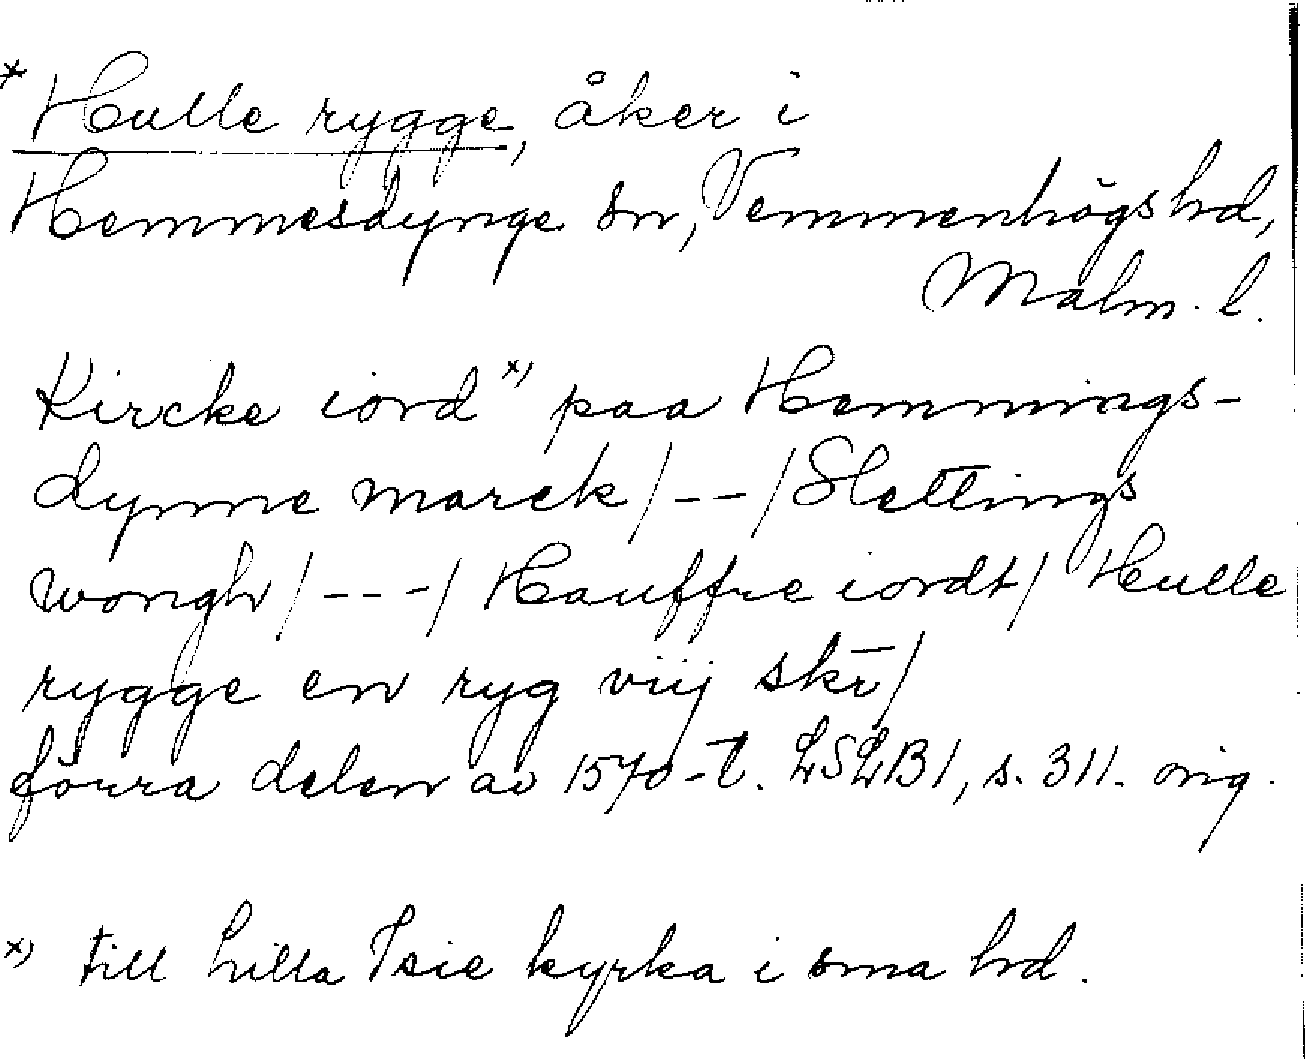 *Hulle rygge, åker i
Hemmesdynge sn, Vemmenhögs hd,
Malm. l.
Kircke iord x) paa Hemmings-
dynne marck/--/Slettings
wongh/---/Hauffre iordt/ Hulle
rygge en ryg viij skr̄/
förra delen av 1570-t. LSLB1, s. 311. orig.
x) till Lilla Isie kyrka i sma hd.